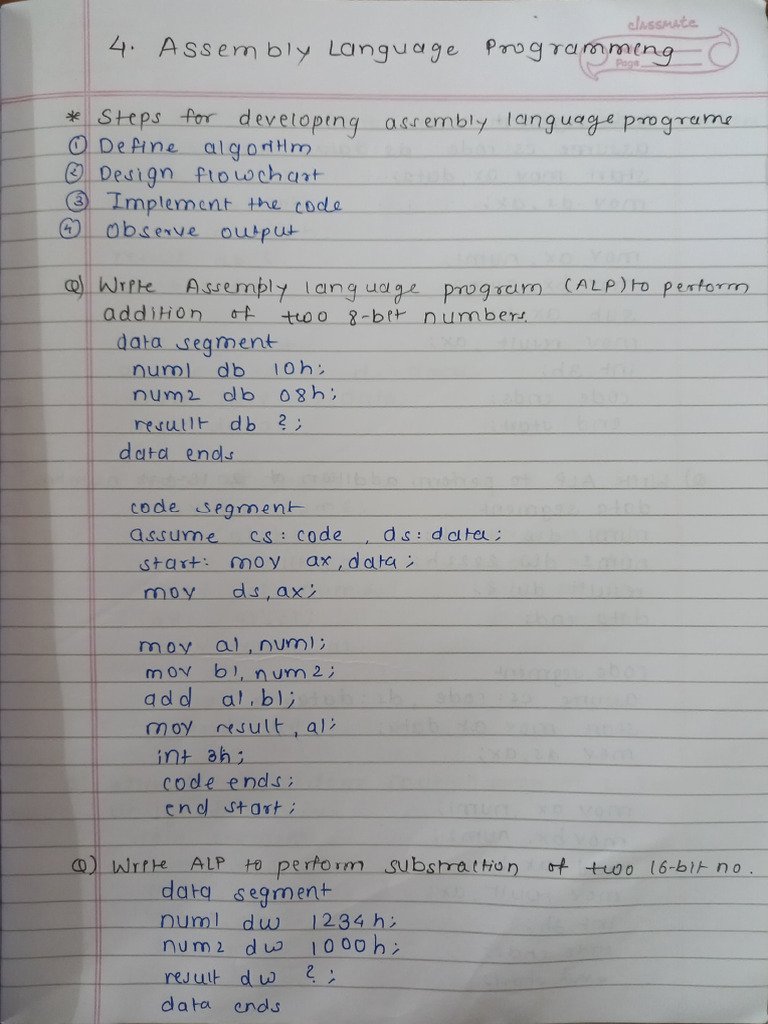 classmate
4. Assembly Language Programming
Page
* Steps for developing assembly language programs
① Define algorithm
② Design flowchart
③ Implement the code
④ Observe output
Q) Write Assembly language program (ALP) to perform
addition of two 8-bit numbers.
data segment
num1 db 10h;
num2 db 08h;
resullt db ?;
data ends
code segment
assume cs:code , ds:data;
start: mov ax,data;
mov ds,ax;
mov al,num1;
mov bl,num2;
add al,bl;
mov result,al;
int 3h;
code ends;
end start;
Q) Write ALP to perform substraction of two 16-bit no.
data segment
num1 dw 1234h;
num2 dw 1000h;
result dw ?;
data ends